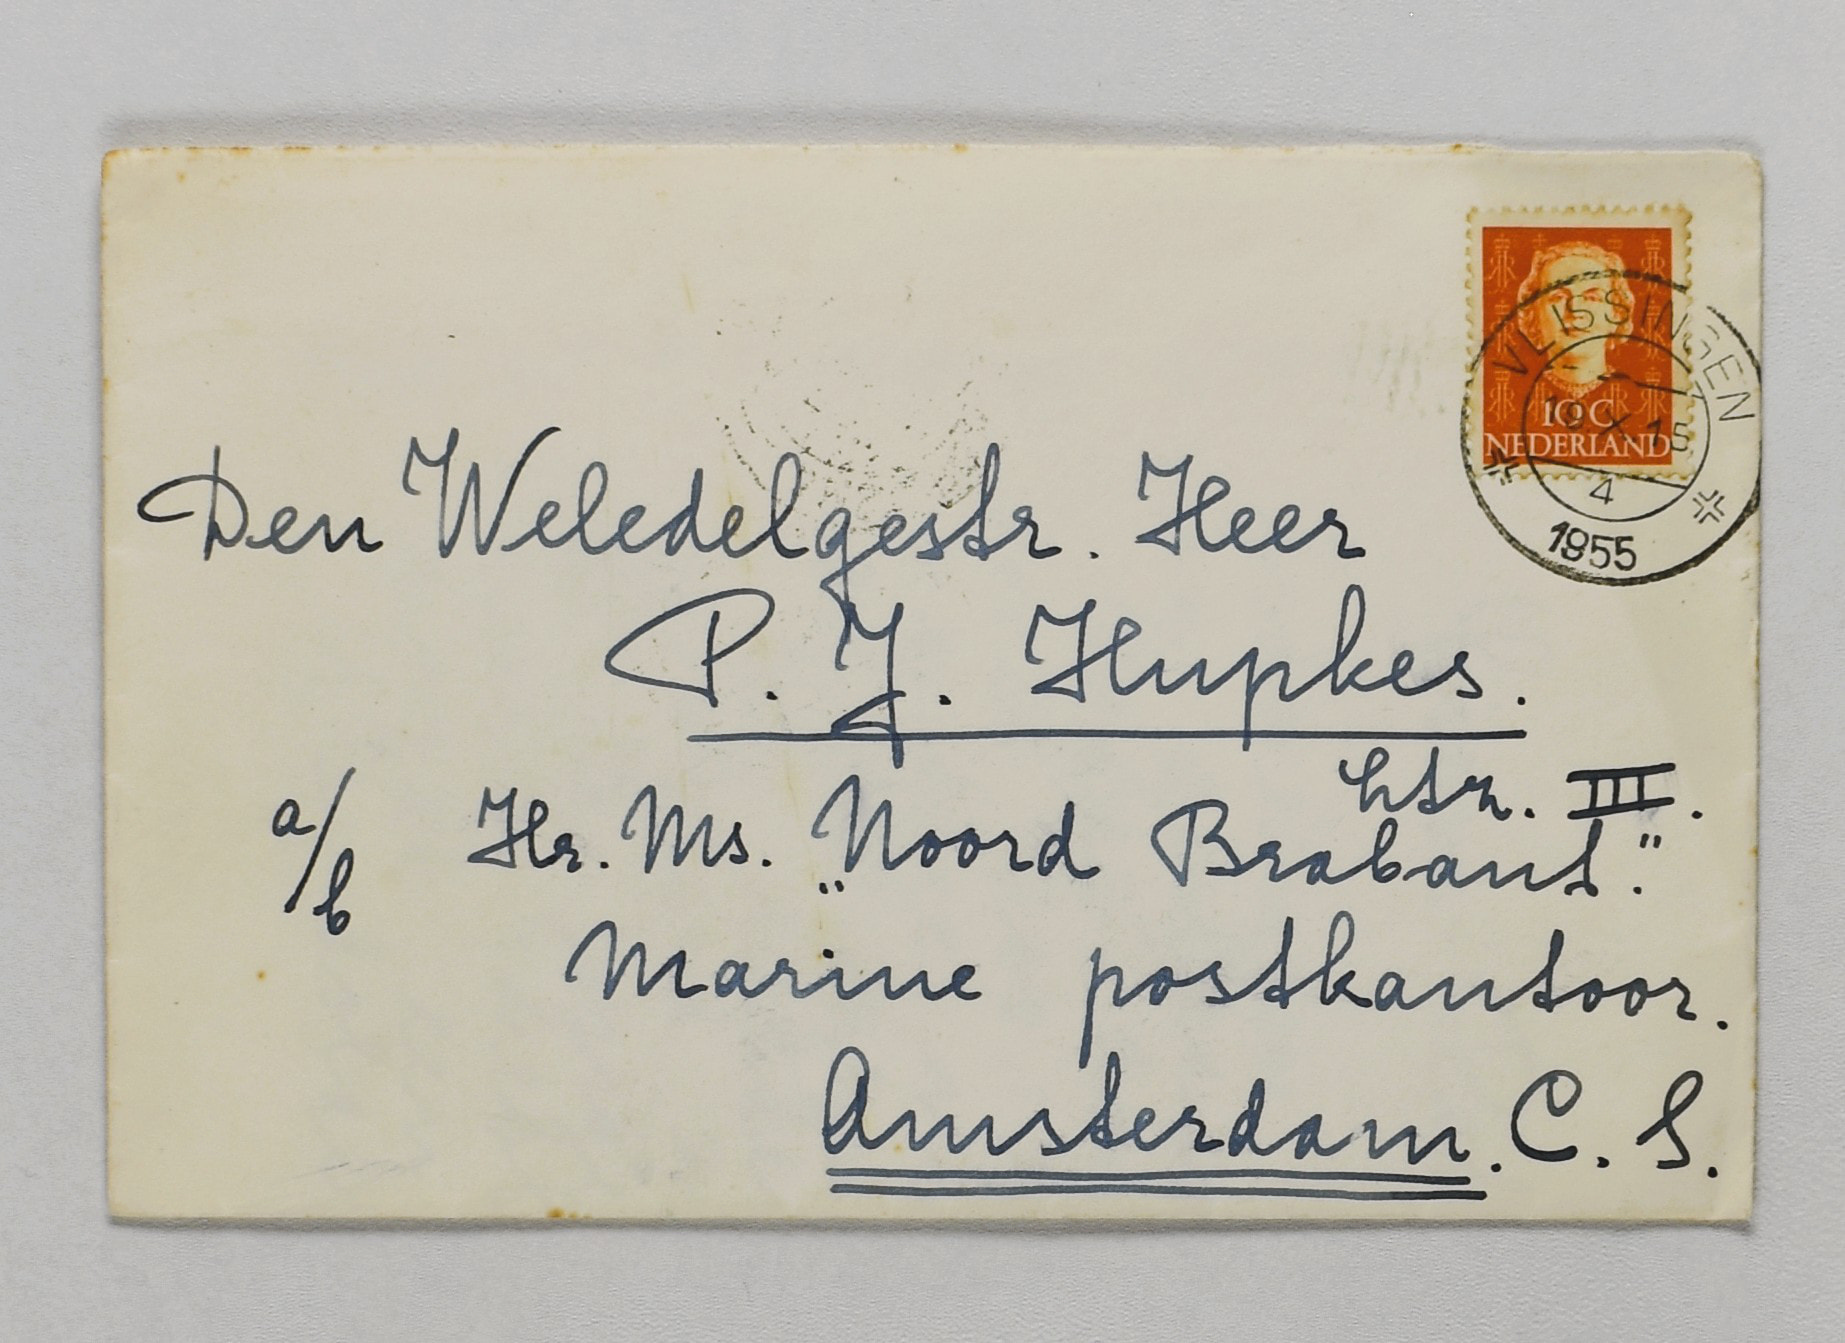 VLISSINGEN
19 X 15
4
1955
10 C
NEDERLAND
Den Weledelgestr. Heer
P. J. Hupkes.
Ltz. III.
a/b Hr. Ms. „Noord Brabant".
Marine postkantoor.
Amsterdam. C. S.